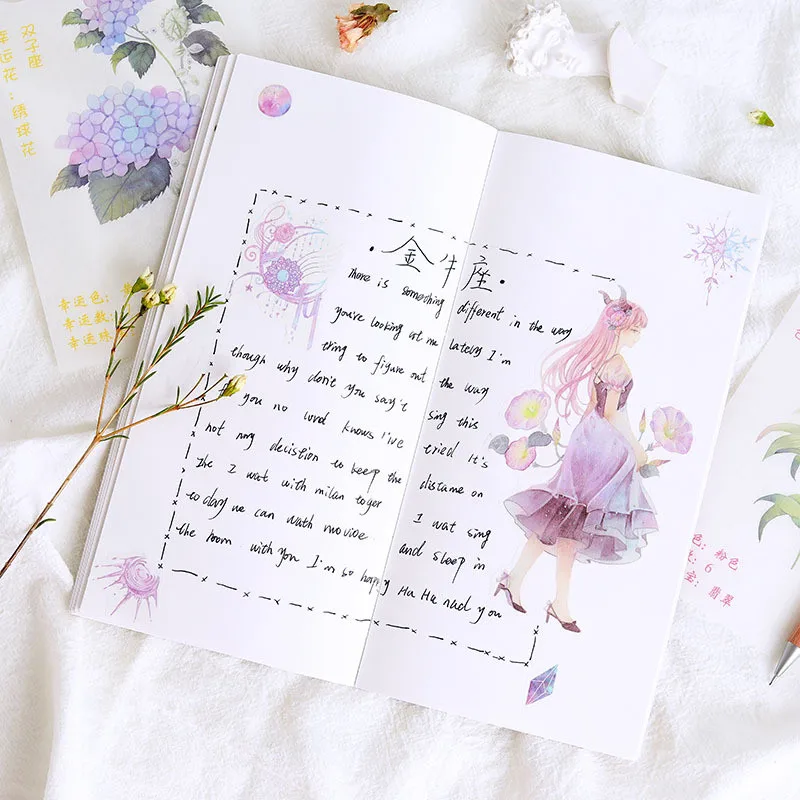 双子座
幸运花：绣球花
幸运色：
幸运数
幸运珠
·金牛座·
There is something different in the way
you're looking at me lately I'm
tring to figure out the way
though why don't you say't
If you no word knows I've sing this
not my decistion to keep the tried It's
The I wat with milan toger distame on
to day we can wath movide I wat sing
the room with you I'm so happy and sleep in
Ha Ha nad you
色：粉色
：6
宝：翡翠